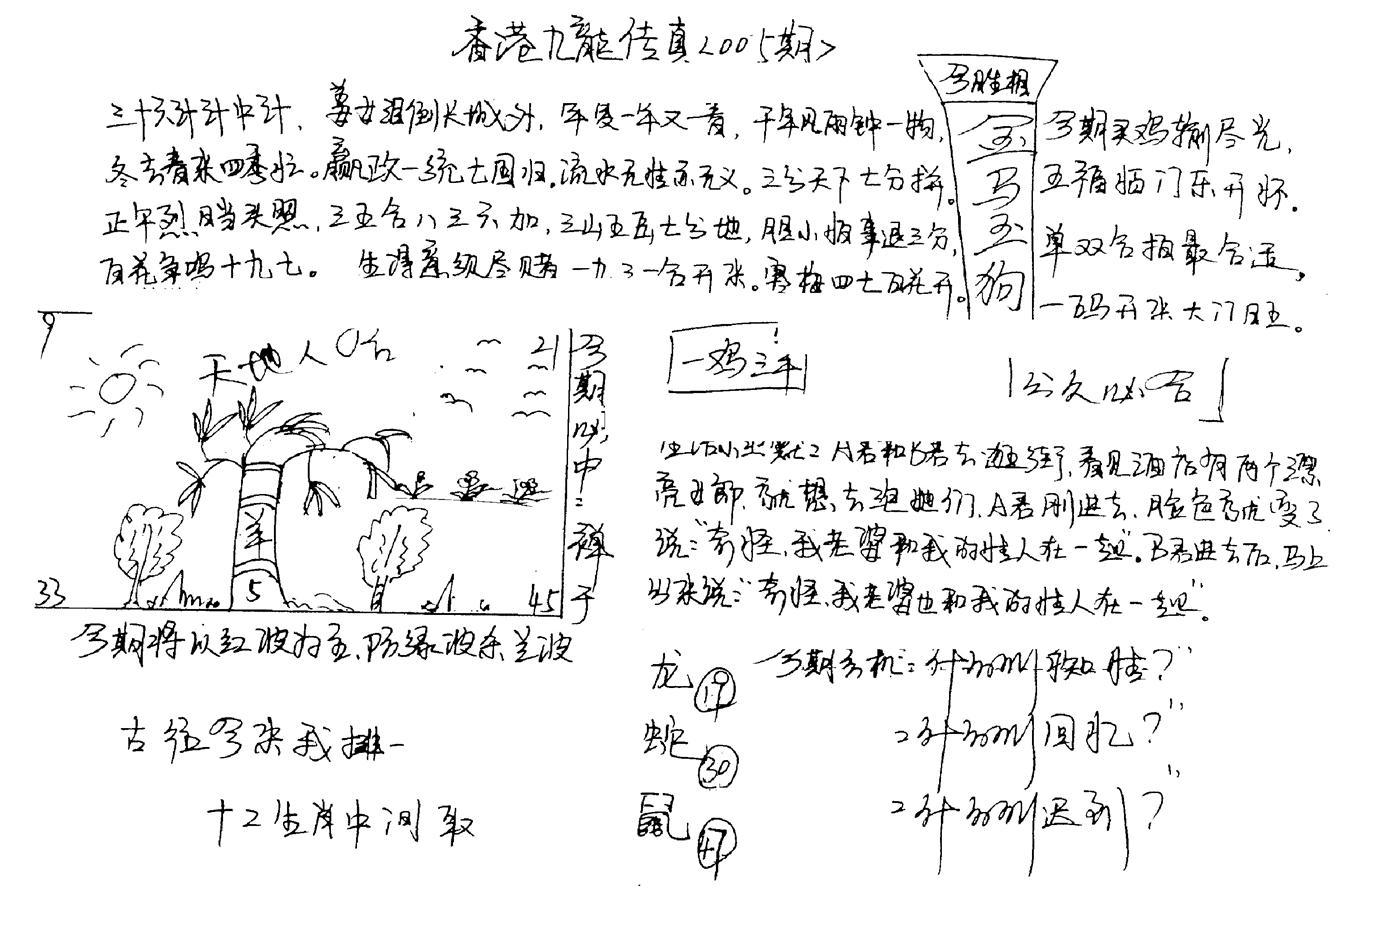 香港九龍传真<005期>
三十六计计中计、姜女泪倒长城外，年复一年又一春，千年见雨钟一物，
冬去春来四季忙。赢政一统七国归。流水无性亦无义。三分天下七分拼。
正午烈日当头照，三五合八三六加，三山五岳七分地，胆小怕事退三分，
百花争鸣十九七。 生得意须尽财 一九三一合开来。寒梅四七百花开。
今胜相
金马玉狗
今期买鸡输尽光，
五福 门乐开怀.
单双合拍最合适，
一码开来大门旺。
天地人 合
9
21
33
45
羊
5
今期必中：禅子
一鸡三羊！
「公众必合」
A君和B君去逛街，看见酒店有两个漂
亮女郎，就想去泡她们，A君刚进去，脸色就变了
说："奇怪，我老婆和我的情人在一起"。B君进去后，马上
出来说："奇怪，我老婆也和我的情人在一起"。
今期将以红波为主、防绿波杀兰波
古往今来我排一
十二生肖中间取
龙 19
蛇 30
鼠 47
今期玄机：什么叫 ？"
：什么叫回忆？"
：什么叫迟到？"